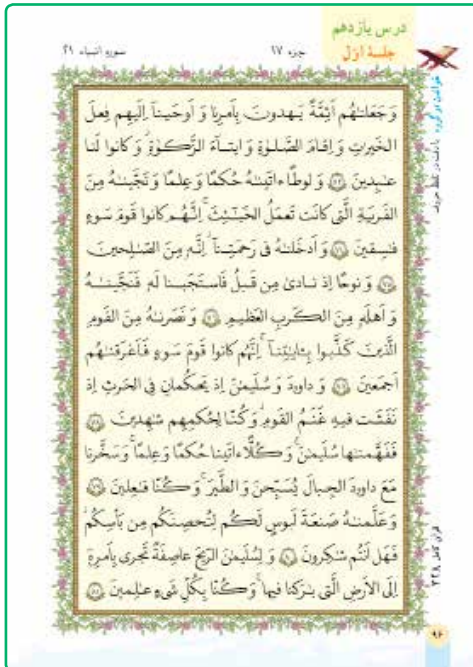 درس یازدهم
جلسهٔ اوّل
جزء ۱۷
سوره انبیاء ۲۱
وَ جَعَلناهُم اَئِمَّةً يَهدونَ بِاَمرِنا وَ اَوحَينا اِلَيهِم فِعلَ
الخَيراتِ وَ اِقامَ الصَّلوٰةِ وَ ايتاءَ الزَّكوٰةِ وَ كانوا لَنا
عٰبِدينَ ﴿٧٣﴾ وَ لوطًا ءاتَينٰهُ حُكمًا وَ عِلمًا وَ نَجَّينٰهُ مِنَ
القَريَةِ الَّتى كانَت تَعمَلُ الخَبٰئِثَ اِنَّهُم كانوا قَومَ سَوءٍ
فٰسِقينَ ﴿٧٤﴾ وَ اَدخَلنٰهُ فى رَحمَتِنا اِنَّه مِنَ الصّٰلِحينَ
﴿٧٥﴾ وَ نوحًا اِذ نادىٰ مِن قَبلُ فَاستَجَبنا لَه فَنَجَّينٰهُ
وَ اَهلَه مِنَ الكَربِ العَظيمِ ﴿٧٦﴾ وَ نَصَرنٰهُ مِنَ القَومِ
الَّذينَ كَذَّبوا بِـٔايٰتِنا اِنَّهُم كانوا قَومَ سَوءٍ فَاَغرَقنٰهُم
اَجمَعينَ ﴿٧٧﴾ وَ داوودَ وَ سُلَيمٰنَ اِذ يَحكُمانِ فِى الحَرثِ اِذ
نَفَشَت فيهِ غَنَمُ القَومِ وَ كُنّا لِحُكمِهِم شٰهِدينَ ﴿٧٨﴾
فَفَهَّمنٰها سُلَيمٰنَ وَ كُلًّا ءاتَينا حُكمًا وَ عِلمًا وَ سَخَّرنا
مَعَ داوودَ الجِبالَ يُسَبِّحنَ وَ الطَّيرَ وَ كُنّا فٰعِلينَ ﴿٧٩﴾
وَ عَلَّمنٰهُ صَنعَةَ لَبوسٍ لَكُم لِتُحصِنَكُم مِن بَأسِكُم
فَهَل اَنتُم شٰكِرونَ ﴿٨٠﴾ وَ لِسُلَيمٰنَ الرّيحَ عاصِفَةً تَجرى بِاَمرِه
اِلَى الاَرضِ الَّتى بٰرَكنا فيها وَ كُنّا بِكُلِّ شَىءٍ عٰلِمينَ ﴿٨١﴾
قرآن کامل ۳۲۸
۹۶